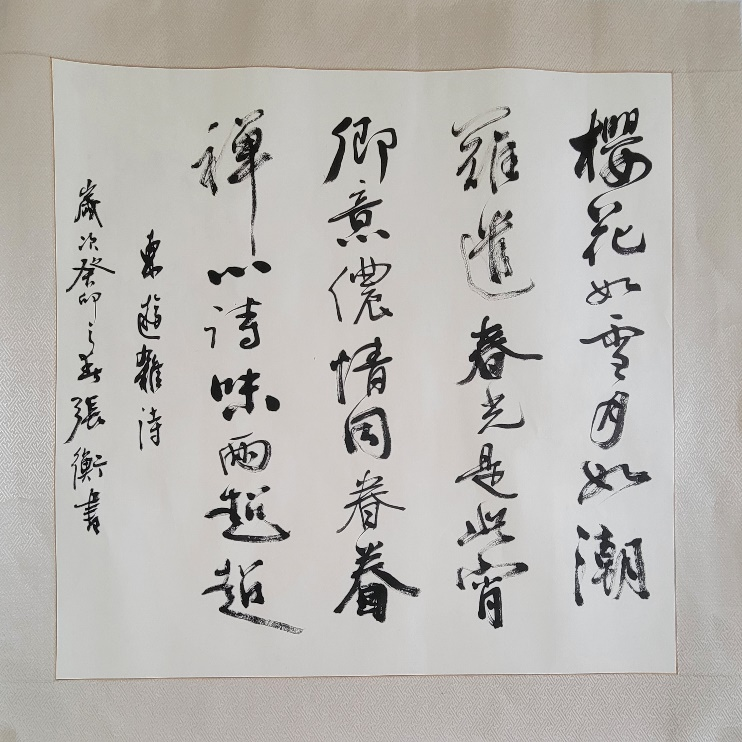 櫻花如雪月如潮
難遣春光是此宵
卿意儂情同眷眷
禪心詩味兩超超
東遊雜詩
歲次癸卯之春張衡書